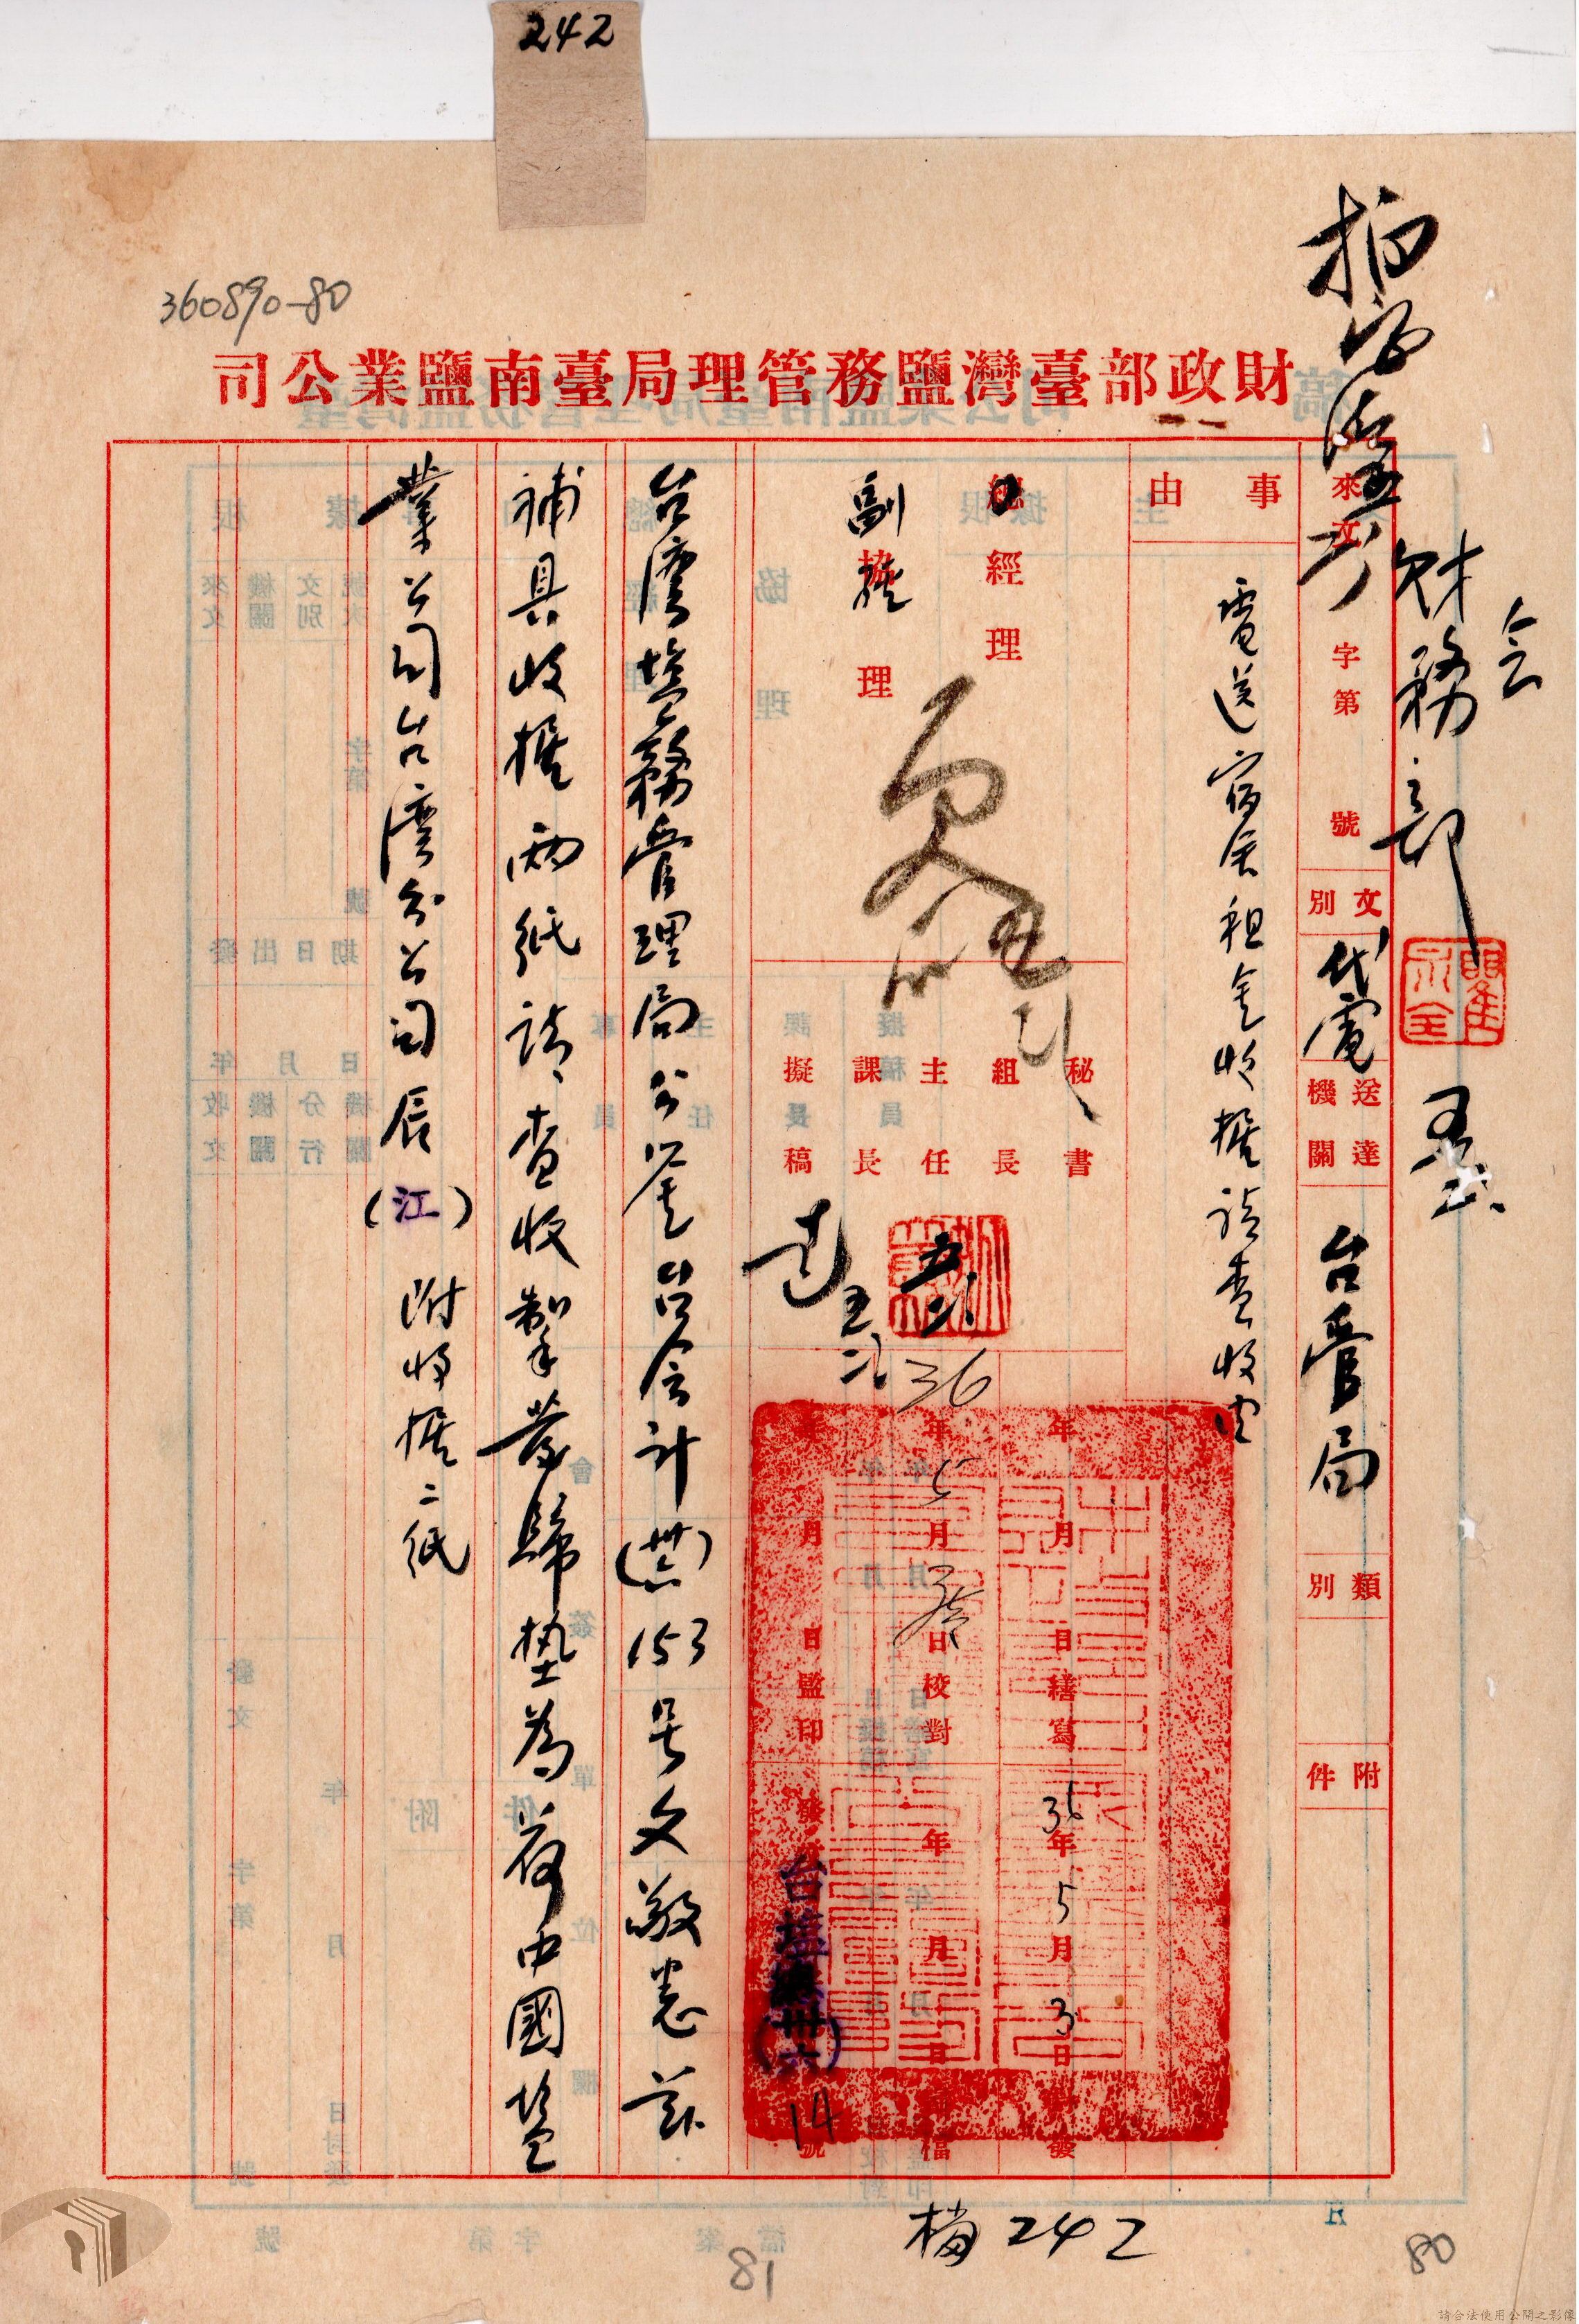 242
360890-80
財政部臺灣鹽務管理局臺南鹽業公司
會
財務部
來文
字第
號
文別
代電
送達機關
台管局
類別
附件
事由
電送宿舍租金收據請查收由
總經理
副經理
協理
秘書
組長
主任
課長
擬稿
36年5月
日校對
年
月
日繕寫
月
日監印
36年5月3日封發
年
月
日歸檔
發
台鹽
(卅六)
14
號
台湾塩務管理局公鑒台会計(卅六)153号文敬悉茲
補具收據兩紙請查收掣發歸墊為荷中國塩
業公司台湾分公司辰(江)附收據二紙
檔242
81
80
請合法使用公開之影像